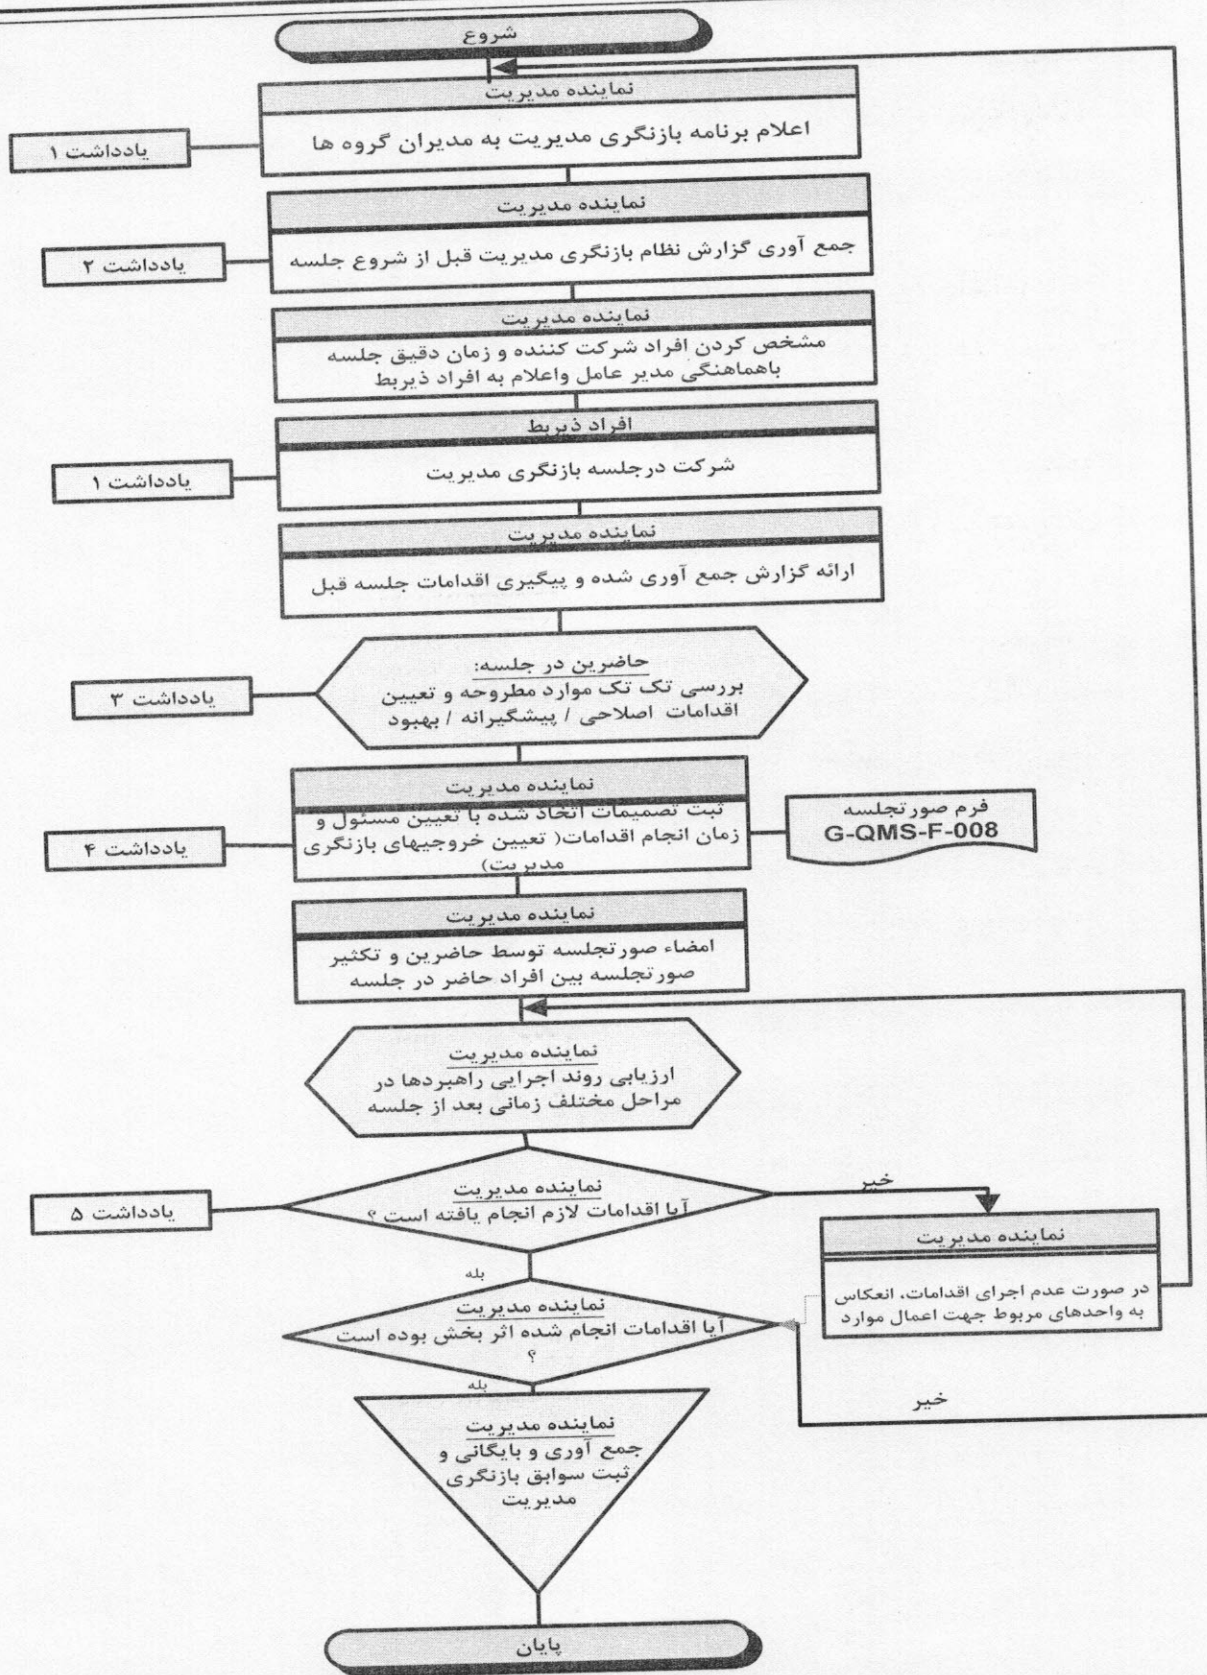 شروع
نماینده مدیریت
اعلام برنامه بازنگری مدیریت به مدیران گروه ها
یادداشت ۱
نماینده مدیریت
جمع آوری گزارش نظام بازنگری مدیریت قبل از شروع جلسه
یادداشت ۲
نماینده مدیریت
مشخص کردن افراد شرکت کننده و زمان دقیق جلسه
باهماهنگی مدیر عامل واعلام به افراد ذیربط
افراد ذیربط
شرکت درجلسه بازنگری مدیریت
یادداشت ۱
نماینده مدیریت
ارائه گزارش جمع آوری شده و پیگیری اقدامات جلسه قبل
حاضرین در جلسه:
بررسی تک تک موارد مطروحه و تعیین
اقدامات اصلاحی / پیشگیرانه / بهبود
یادداشت ۳
نماینده مدیریت
ثبت تصمیمات اتخاذ شده با تعیین مسئول و
زمان انجام اقدامات( تعیین خروجیهای بازنگری
مدیریت)
فرم صورتجلسه
G-QMS-F-008
یادداشت ۴
نماینده مدیریت
امضاء صورتجلسه توسط حاضرین و تکثیر
صورتجلسه بین افراد حاضر در جلسه
نماینده مدیریت
ارزیابی روند اجرایی راهبردها در
مراحل مختلف زمانی بعد از جلسه
نماینده مدیریت
آیا اقدامات لازم انجام یافته است ؟
یادداشت ۵
خیر
نماینده مدیریت
در صورت عدم اجرای اقدامات، انعکاس
به واحدهای مربوط جهت اعمال موارد
بله
نماینده مدیریت
آیا اقدامات انجام شده اثر بخش بوده است
؟
خیر
بله
نماینده مدیریت
جمع آوری و بایگانی و
ثبت سوابق بازنگری
مدیریت
پایان